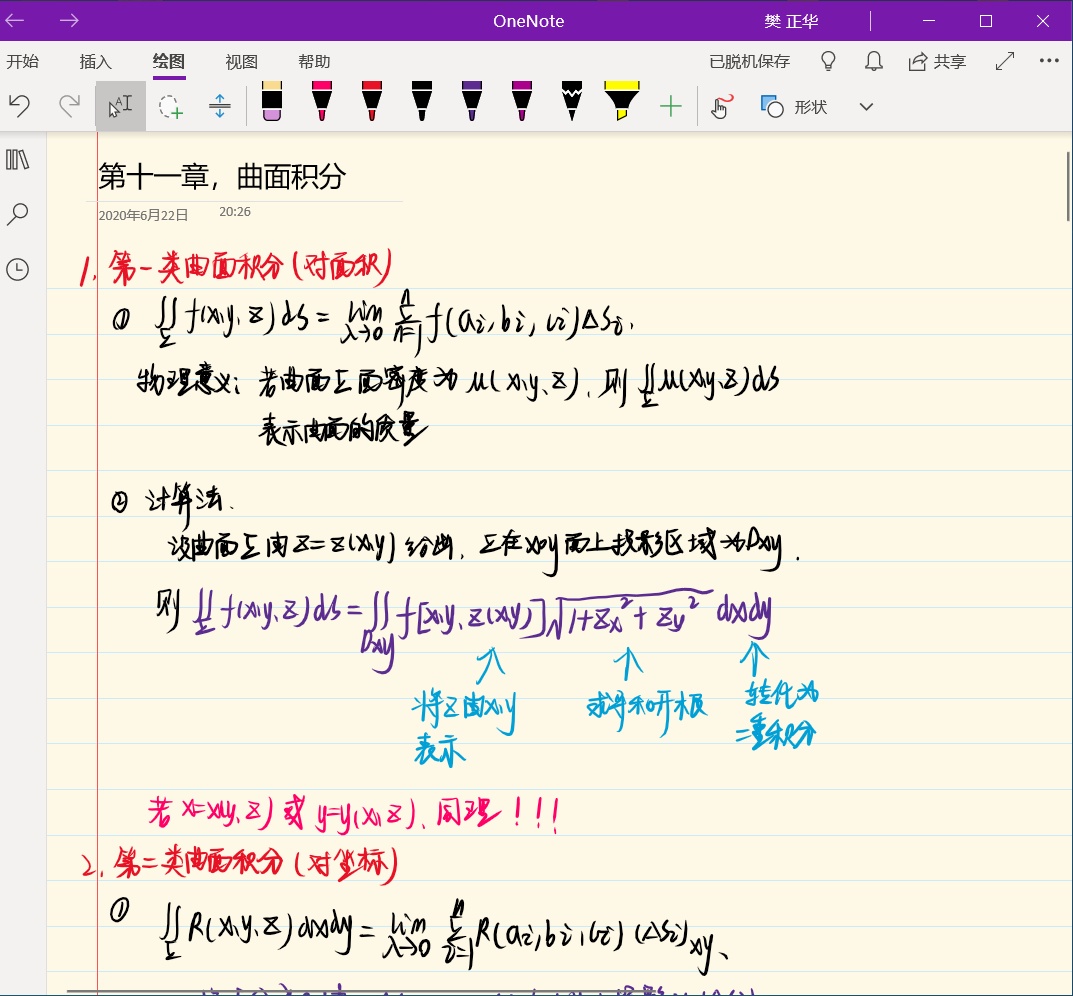 OneNote 樊 正华
开始 插入 绘图 视图 帮助 已脱机保存 共享
形状
第十一章，曲面积分
2020年6月22日 20:26
1. 第一类曲面积分(对面积)
① ∬_Σ f(x,y,z)ds = lim_{λ→0} Σ_{i=1}^{n} f(ai,bi,ci)Δsi.
物理意义: 若曲面Σ面密度为 μ(x,y,z), 则 ∬_Σ μ(x,y,z)ds
表示曲面的质量
② 计算法.
设曲面Σ由z=z(x,y)给出, Σ在xoy面上投影区域为Dxy.
则 ∬_Σ f(x,y,z)ds = ∬_{Dxy} f[x,y,z(x,y)]√(1+zx²+zy²) dxdy
↑ ↑ ↑
将z由x,y 求导和开根 转化为
表示 二重积分
若 x=x(y,z) 或 y=y(x,z), 同理!!!
2. 第二类曲面积分(对坐标)
① ∬_Σ R(x,y,z)dxdy = lim_{λ→0} Σ_{i=1}^{n} R(ai,bi,ci)(Δsi)xy、